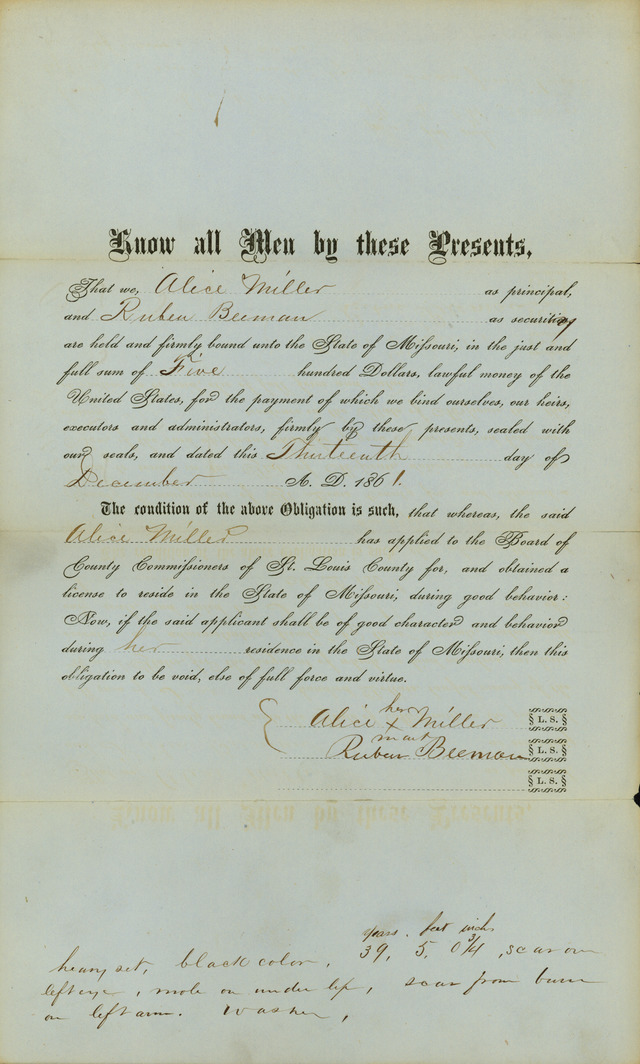 Know all Men by these Presents,
That we, Alice Miller as principal,
and Ruben Beeman as security
are held and firmly bound unto the State of Missouri, in the just and
full sum of Five hundred Dollars, lawful money of the
United States, for the payment of which we bind ourselves, our heirs,
executors and administrators, firmly by these presents, sealed with
our seals, and dated this Thirteenth day of
December A. D. 1861.
The condition of the above Obligation is such, that whereas, the said
Alice Miller has applied to the Board of
County Commissioners of St. Louis County for, and obtained a
license to reside in the State of Missouri, during good behavior:
Now, if the said applicant shall be of good character and behavior
during her residence in the State of Missouri, then this
obligation to be void, else of full force and virtue.
her
Alice x Miller § L. S. §
mark
Ruben Beeman § L. S. §
§ L. S. §
years. feet inches
heavy set, black color, 39, 5, 0 3/4, scar over
left eye, mole on under lip, scar from burn
on left arm. Washer,